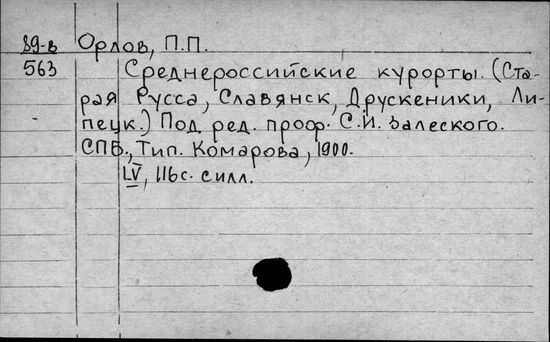 89-в Орлов, П.П.
563 Среднероссийские курорты. (Ста-
рая Русса, Славянск, Друскеники, Ли-
пецк.) Под ред. проф. С.И. Залеского.
СПБ., Тип. Комарова, 1900.
LV, 116с. силл.